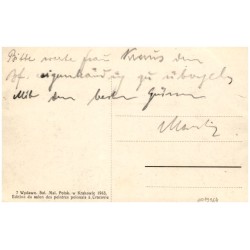 Bitte werte Frau Kraus den
Bf. eigenhändig zu übergeben
Mit den besten Grüssen
7 Wystawa. Sal. Mal. Polsk. w Krakowie 1915.
Edition du salon des peintres polonais à Cracovie